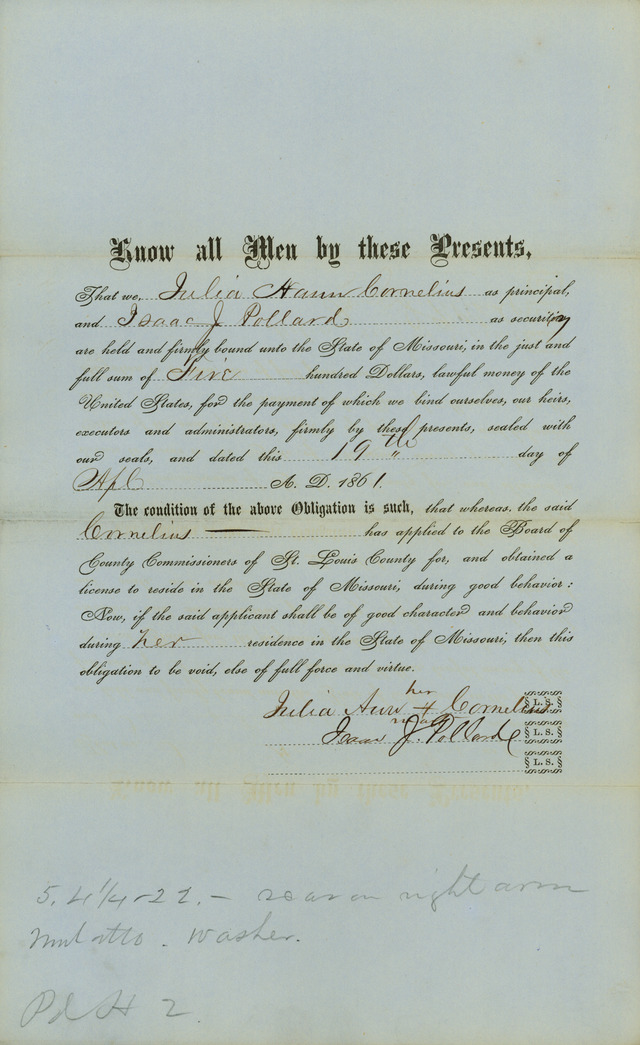 Know all Men by these Presents,
That we, Julia Ann Cornelius as principal,
and Isaac J Pollard as security
are held and firmly bound unto the State of Missouri, in the just and
full sum of Five hundred Dollars, lawful money of the
United States, for the payment of which we bind ourselves, our heirs,
executors and administrators, firmly by these presents, sealed with
our seals, and dated this 19th day of
Apl A. D. 1861.
The condition of the above Obligation is such, that whereas, the said
Cornelius has applied to the Board of
County Commissioners of St. Louis County for, and obtained a
license to reside in the State of Missouri, during good behavior:
Now, if the said applicant shall be of good character and behavior
during her residence in the State of Missouri, then this
obligation to be void, else of full force and virtue.
her
Julia Ann + Cornelius L. S.
mark
Isaac J. Pollard L. S.
L. S.
5. 4 1/4 - 22. - scar on right arm
Mulatto. Washer.
Pd $ 2.